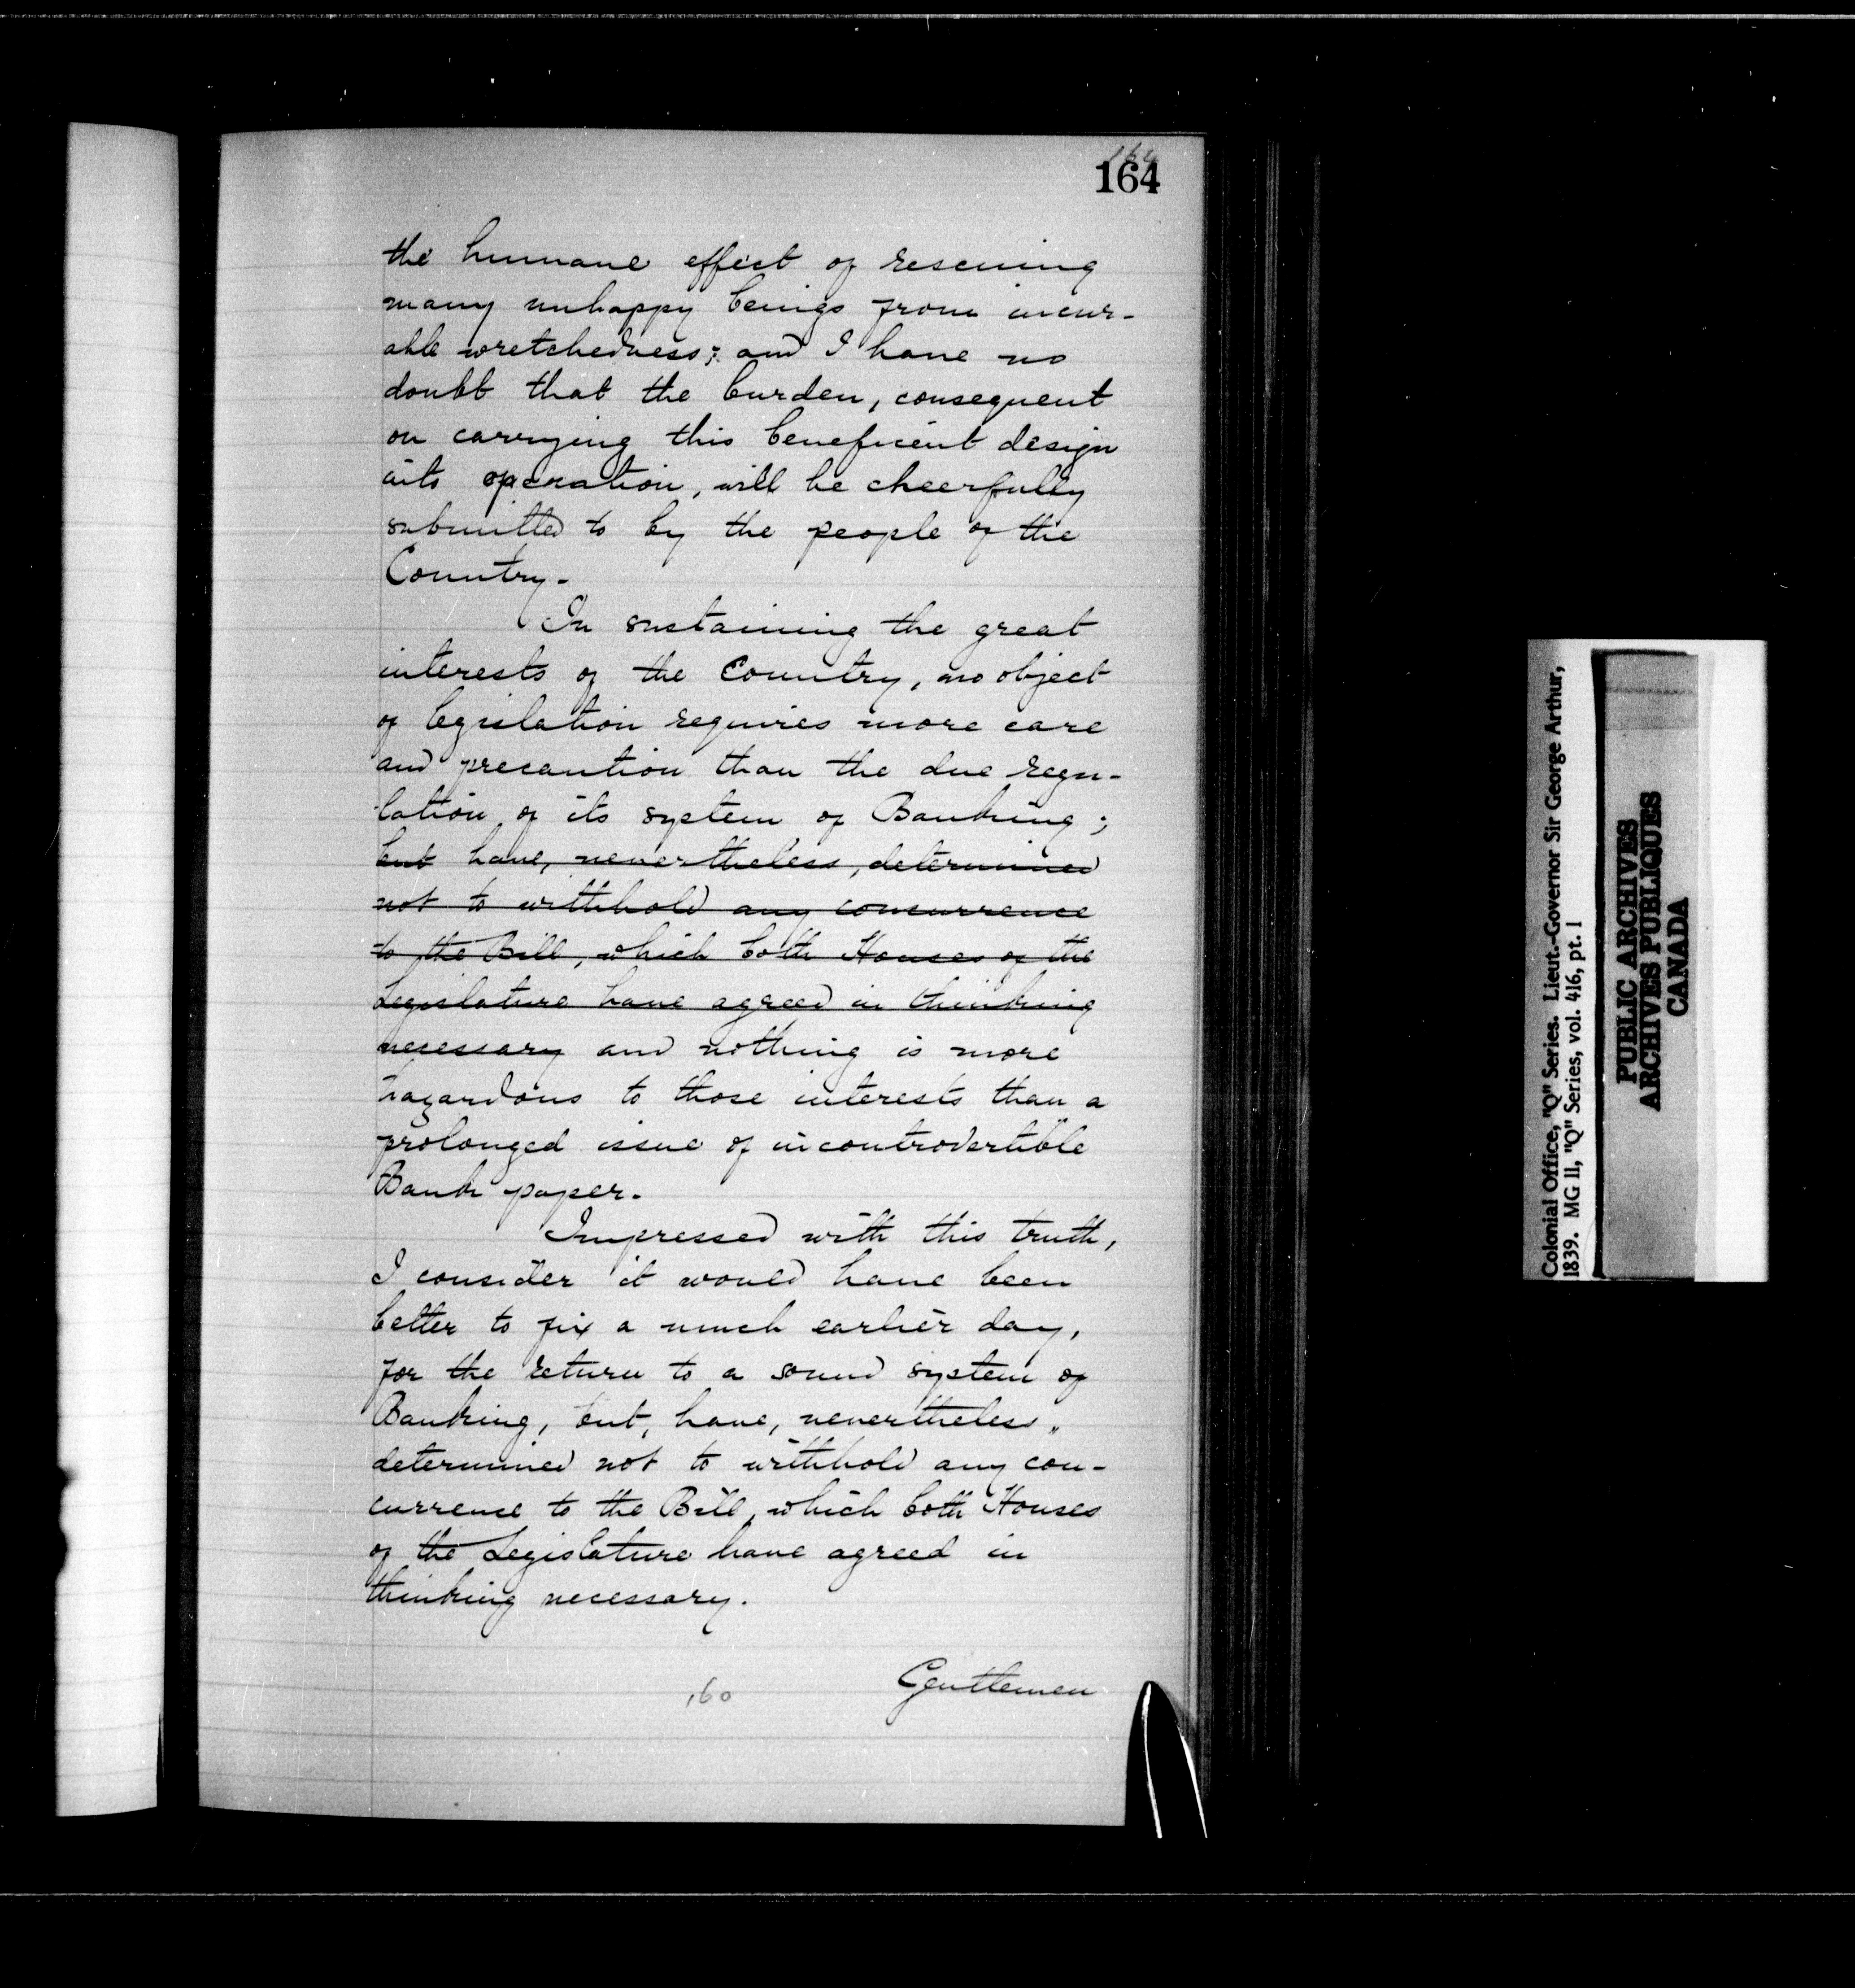 164
164
the humane effect of rescuing
many unhappy beings from incur-
able wretchedness; and I have no
doubt that the burden, consequent
on carrying this beneficent design
into operation, will be cheerfully
submitted to by the people of the
Country.
In sustaining the great
interests of the Country, no object
of legislation requires more care
and precaution than the due regu-
lation of its system of Banking;
but have, nevertheless, determined
not to withhold any concurrence
to the Bill, which both Houses of the
Legislature have agreed in thinking
necessary and nothing is more
hazardous to those interests than a
prolonged issue of incontrovertible
Bank paper.
Impressed with this truth,
I consider it would have been
better to fix a much earlier day,
for the return to a sound system of
Banking, but, have, nevertheless,,
determined not to withhold any con-
currence to the Bill, which both Houses
of the Legislature have agreed in
thinking necessary.
Gentlemen
160
Colonial Office, "Q" Series. Lieut.-Governor Sir George Arthur,
1839. MG 11, "Q" Series, vol. 416, pt. 1
PUBLIC ARCHIVES
ARCHIVES PUBLIQUES
CANADA